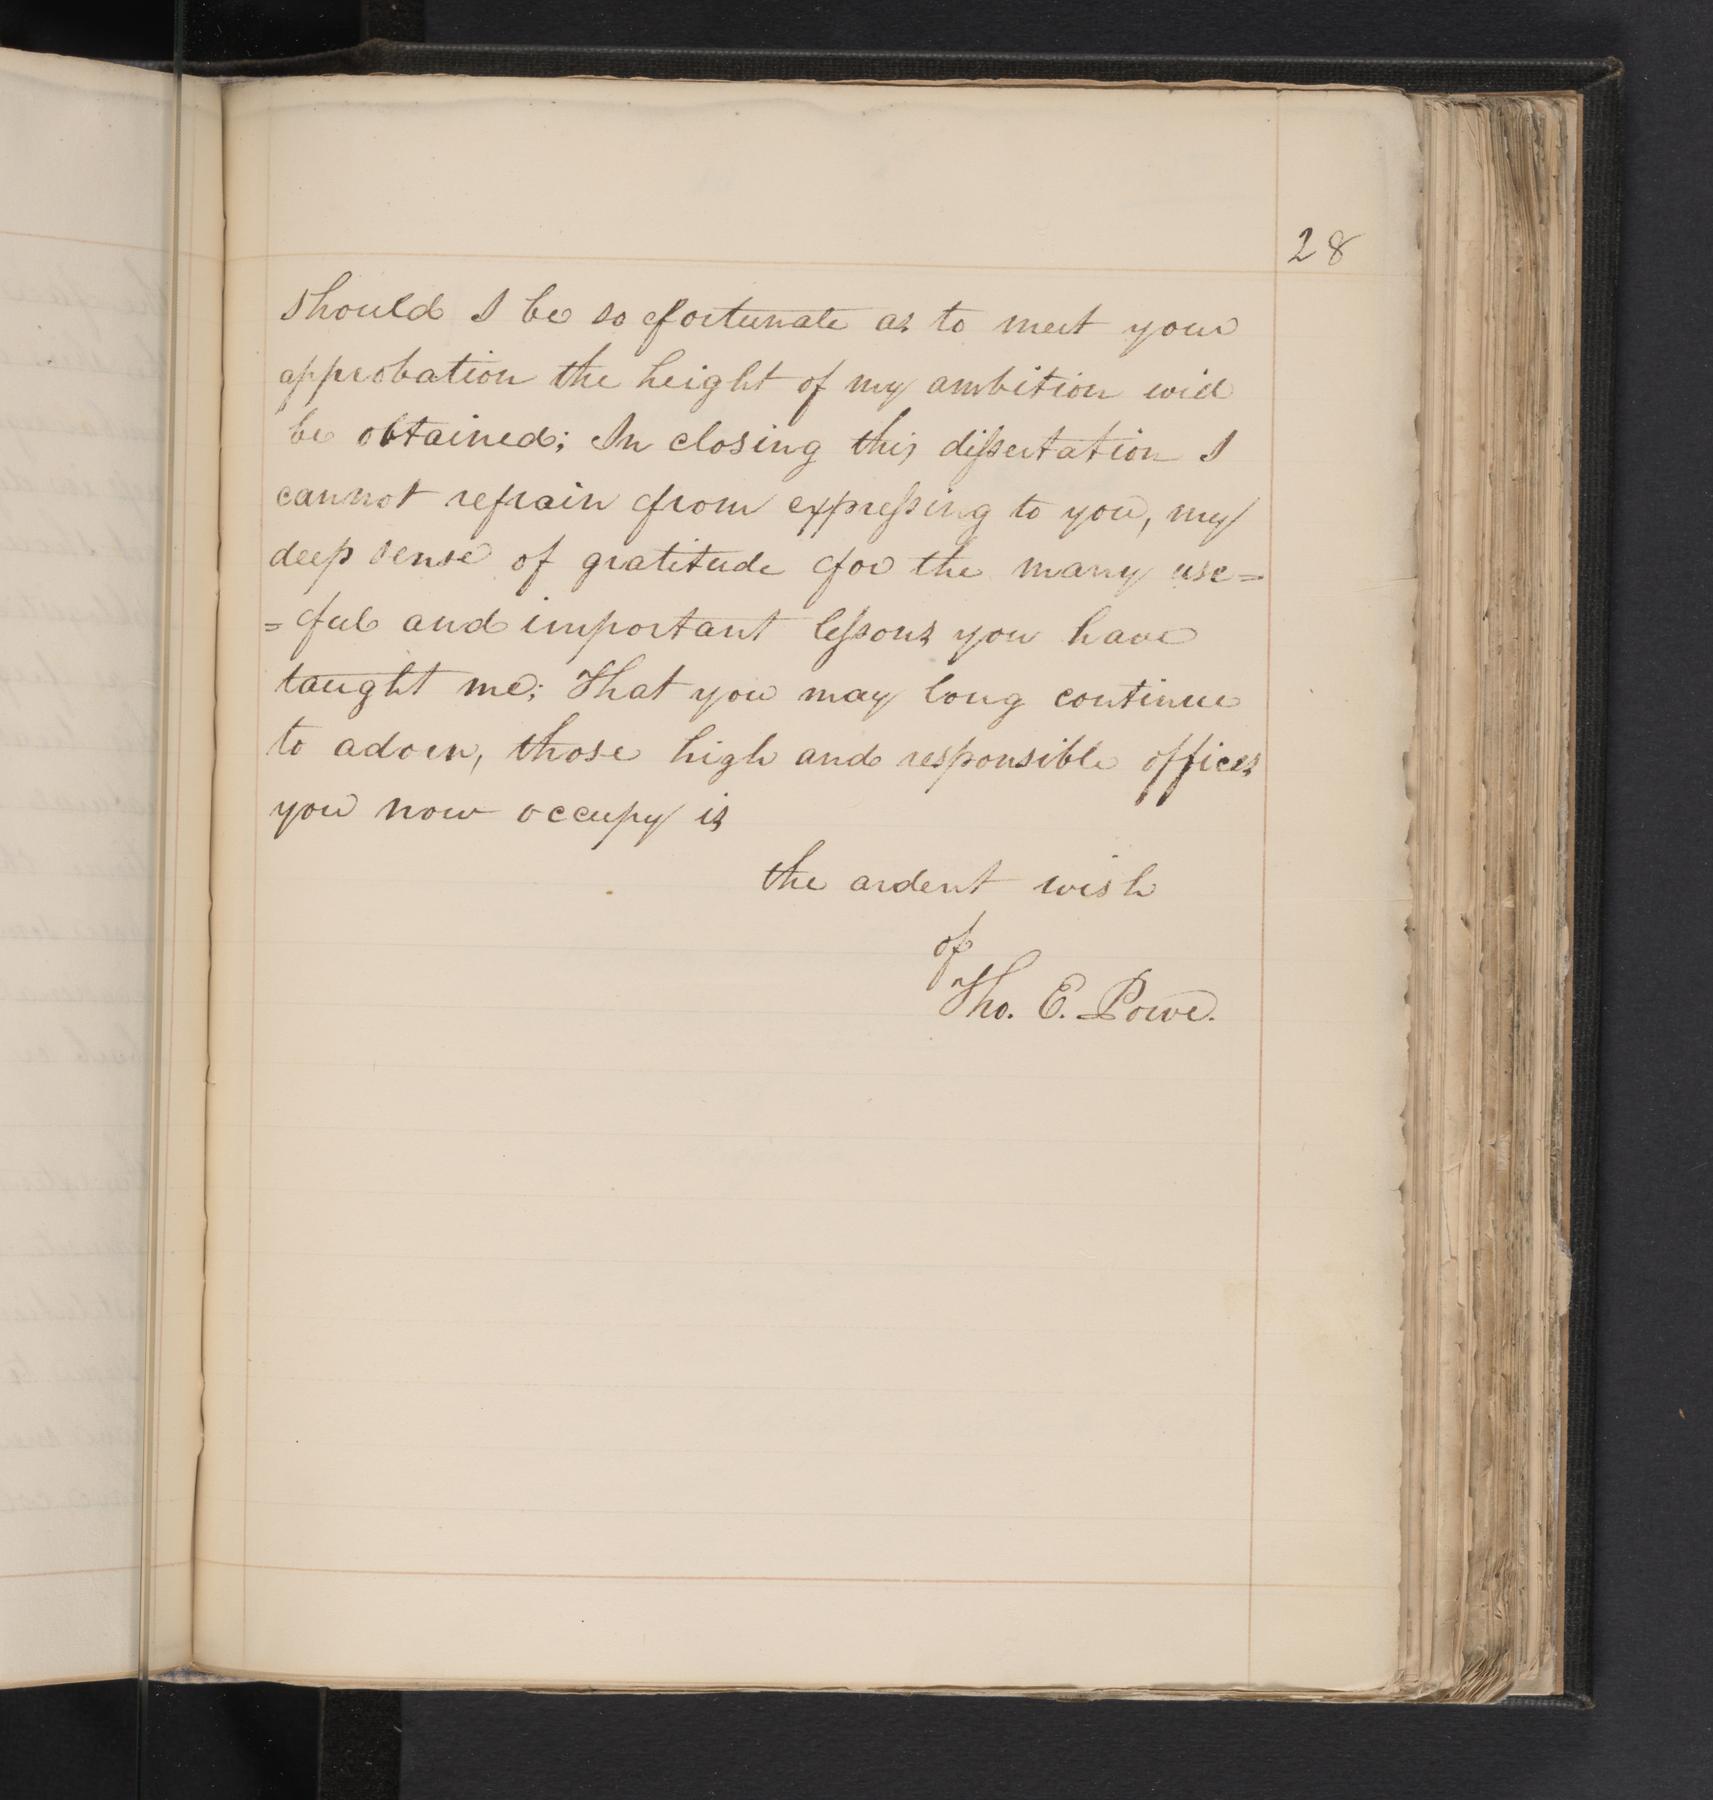 28
should I be so fortunate as to meet your
approbation the height of my ambition will
be obtained; In closing this dissertation I
cannot refrain from expressing to you, my
deep sense of gratitude for the many use=
=ful and important lessons you have
taught me; That you may long continue
to adorn, those high and responsible offices
you now occupy is
the ardent wish
of
Tho. E. Powe.